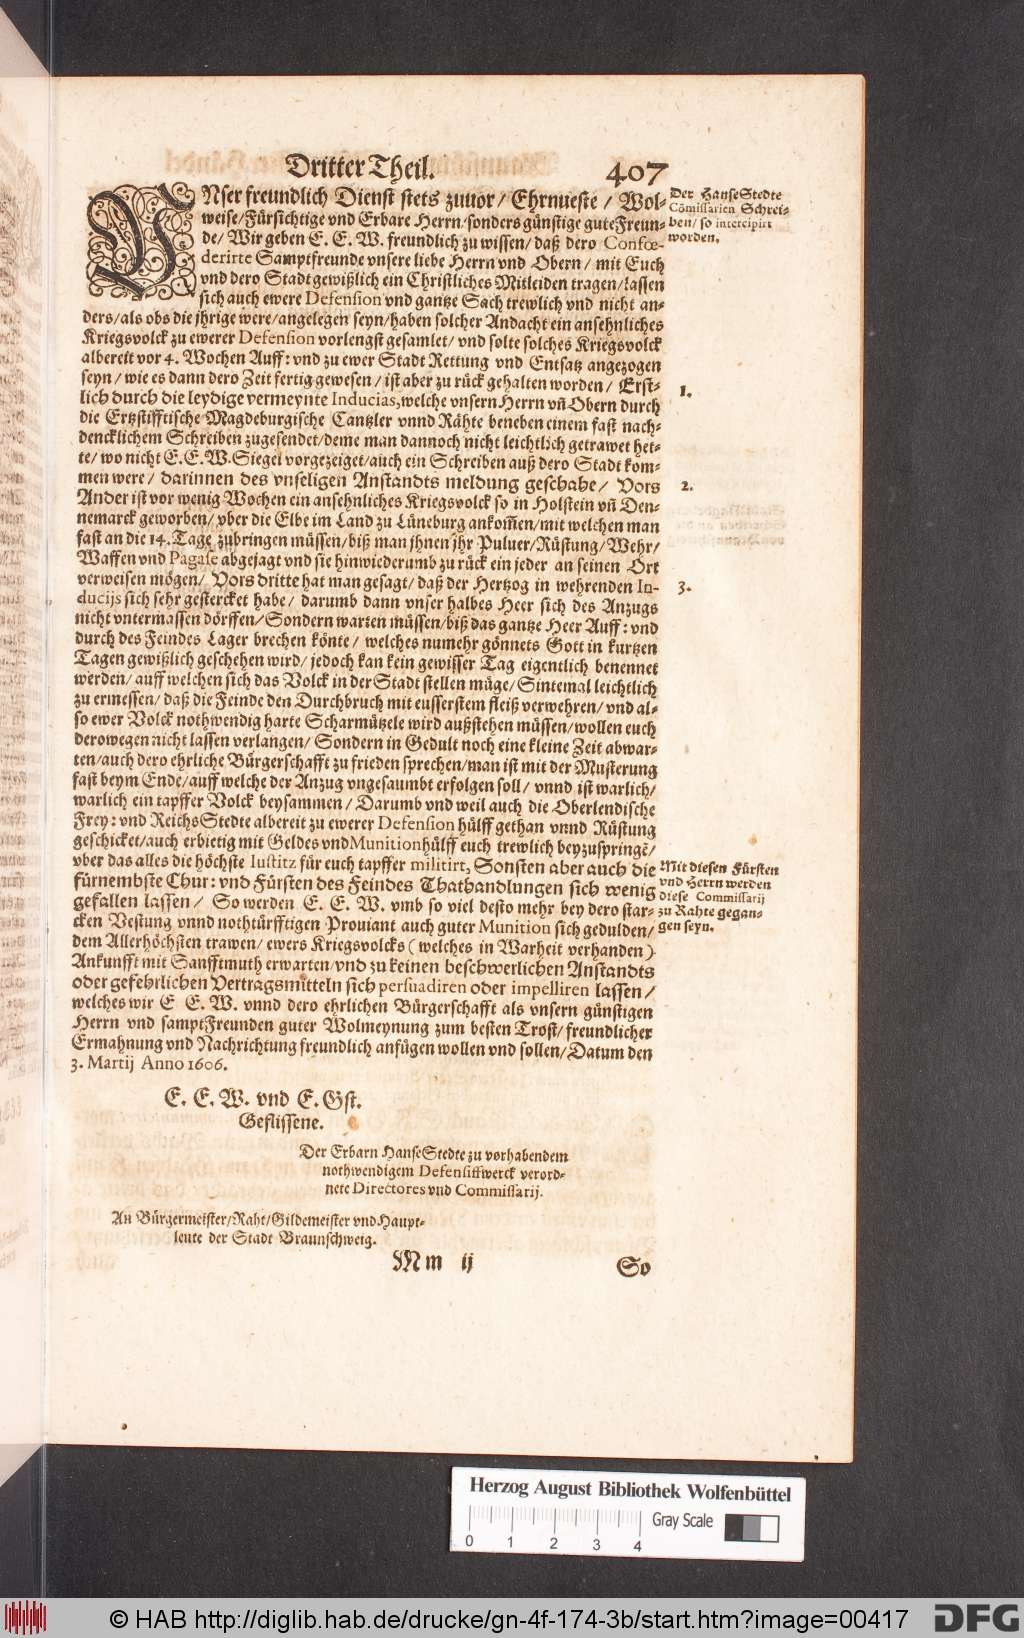 Dritter Theil. 407
VNser freundlich Dienst stets zuuor / Ehrnueste / Wol-
weise/Fürsichtige vnd Erbare Herrn/sonders günstige gute Freun-
de/ Wir geben E. E. W. freundlich zu wissen/ daß dero Confœ-
derirte Samptfreunde vnsere liebe Herrn vnd Obern / mit Euch
vnd dero Stadt gewißlich ein Christliches Mitleiden tragen/lassen
sich auch ewere Defension vnd gantze Sach trewlich vnd nicht an-
ders/als obs die jhrige were/angelegen seyn/haben solcher Andacht ein ansehnliches
Kriegsvolck zu ewerer Defension vorlengst gesamlet/ vnd solte solches Kriegsvolck
albereit vor 4. Wochen Auff: vnd zu ewer Stadt Rettung vnd Entsatz angezogen
seyn / wie es dann dero Zeit fertig gewesen / ist aber zu rück gehalten worden / Erst-
lich durch die leydige vermeynte Inducias, welche vnsern Herrn vñ Obern durch
die Ertzstifftische Magdeburgische Cantzler vnnd Rähte beneben einem fast nach-
dencklichem Schreiben zugesendet/deme man dannoch nicht leichtlich getrawet het-
te/ wo nicht E. E. W. Siegel vorgezeiget/auch ein Schreiben auß dero Stadt kom-
men were / darinnen des vnseligen Anstandts meldung geschahe / Vors
Ander ist vor wenig Wochen ein ansehnliches Kriegsvolck so in Holstein vñ Den-
nemarck geworben/ vber die Elbe im Land zu Lüneburg ankom̃en/mit welchen man
fast an die 14. Tage zubringen müssen/biß man jhnen jhr Puluer/Rüstung/Wehr/
Waffen vnd Pagase abgejagt vnd sie hinwiederumb zu rück ein jeder an seinen Ort
verweisen mögen/ Vors dritte hat man gesagt/ daß der Hertzog in wehrenden In-
ducijs sich sehr gestercket habe/ darumb dann vnser halbes Heer sich des Anzugs
nicht vntermassen dörffen/Sondern warten müssen/biß das gantze Heer Auff: vnd
durch des Feindes Lager brechen könte/ welches numehr gönnets Gott in kurtzen
Tagen gewißlich geschehen wird/ jedoch kan kein gewisser Tag eigentlich benennet
werden/ auff welchen sich das Volck in der Stadt stellen müge/ Sintemal leichtlich
zu ermessen/ daß die Feinde den Durchbruch mit eusserstem fleiß verwehren/ vnd al-
so ewer Volck nothwendig harte Scharmützele wird außstehen müssen/wollen euch
derowegen nicht lassen verlangen/ Sondern in Gedult noch eine kleine Zeit abwar-
ten/auch dero ehrliche Bürgerschafft zu frieden sprechen/man ist mit der Musterung
fast beym Ende/auff welche der Anzug vngesaumbt erfolgen soll/ vnnd ist warlich/
warlich ein tapffer Volck beysammen / Darumb vnd weil auch die Oberlendische
Frey: vnd ReichsStedte albereit zu ewerer Defension hülff gethan vnnd Rüstung
geschicket/auch erbietig mit Geldes vnd Munition hülff euch trewlich beyzuspringē/
vber das alles die höchste Iustitz für euch tapffer militirt, Sonsten aber auch die
fürnembste Chur: vnd Fürsten des Feindes Thathandlungen sich wenig
gefallen lassen / So werden E. E. W. vmb so viel desto mehr bey dero star-
cken Vestung vnnd nothtürfftigen Prouiant auch guter Munition sich gedulden/
dem Allerhöchsten trawen/ ewers Kriegsvolcks ( welches in Warheit verhanden )
Ankunfft mit Sanfftmuth erwarten/vnd zu keinen beschwerlichen Anstandts
oder gefehrlichen Vertragsmitteln sich persuadiren oder impelliren lassen/
welches wir E E. W. vnnd dero ehrlichen Bürgerschafft als vnsern günstigen
Herrn vnd samptFreunden guter Wolmeynung zum besten Trost/ freundlicher
Ermahnung vnd Nachrichtung freundlich anfügen wollen vnd sollen/Datum den
3. Martij Anno 1606.
E. E. W. vnd E. Gst.
Geflissene.
Der Erbarn HanseStedte zu vorhabendem
nothwendigem Defensiffwerck verord-
nete Directores vnd Commissarij.
An Bürgermeister/Raht/Gildemeister vnd Haupt-
leute der Stadt Braunschweig.
Mm ij So
Der HanseStedte
Cōmissarien Schrei-
ben/ so intercipirt
worden.
1.
2.
3.
Mit diesen Fürsten
vnd Herrn werden
diese Commissarij
zu Rahte gegan-
gen seyn.
Herzog August Bibliothek Wolfenbüttel
Gray Scale
0 1 2 3 4
© HAB http://diglib.hab.de/drucke/gn-4f-174-3b/start.htm?image=00417
DFG